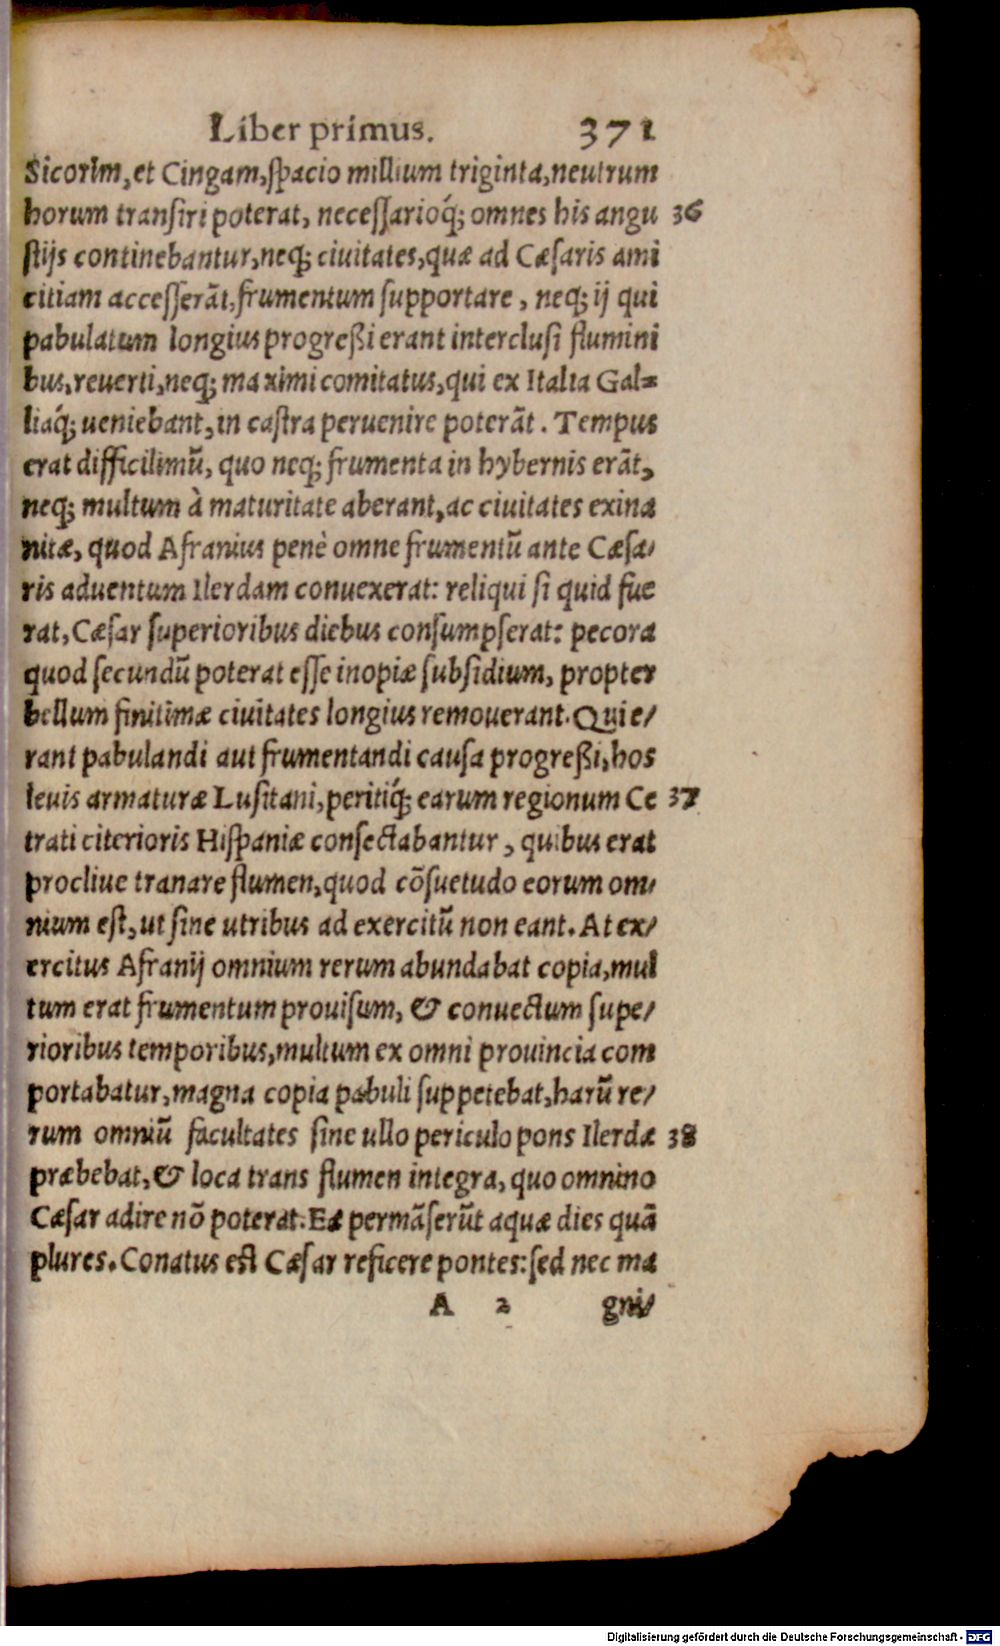 Liber primus. 371
Sicorim, et Cingam, ſpacio millium triginta, neutrum
horum tranſiri poterat, neceſſarioq́; omnes his angu 36
ſtijs continebantur, neq; ciuitates, quæ ad Cæſaris ami
citiam acceſſerãt, frumentum ſupportare, neq; ij qui
pabulatum longius progreßi erant intercluſi flumini
bus, reuerti, neq; maximi comitatus, qui ex Italia Gal⸗
liaq́; ueniebant, in caſtra peruenire poterãt. Tempus
erat difficilimũ, quo neq; frumenta in hybernis erãt,
neq; multum à maturitate aberant, ac ciuitates exina
nitæ, quod Afranius penè omne frumentũ ante Cæſa/
ris aduentum Ilerdam conuexerat: reliqui ſi quid fue
rat, Cæſar ſuperioribus diebus conſumpſerat: pecora
quod ſecundũ poterat eſſe inopiæ ſubſidium, propter
bellum finitimæ ciuitates longius remouerant. Qui e/
rant pabulandi aut frumentandi cauſa progreßi, hos
leuis armaturæ Luſitani, peritiq́; earum regionum Ce 37
trati citerioris Hiſpaniæ conſectabantur, quibus erat
procliue tranare flumen, quod cõſuetudo eorum om/
nium eſt, ut ſine utribus ad exercitũ non eant. At ex/
ercitus Afranij omnium rerum abundabat copia, mul
tum erat frumentum prouiſum, & conuectum ſupe/
rioribus temporibus, multum ex omni prouincia com
portabatur, magna copia pabuli ſuppetebat, harũ re/
rum omniũ facultates ſine ullo periculo pons Ilerdæ 38
præbebat, & loca trans flumen integra, quo omnino
Cæſar adire nõ poterat. Eæ permãſerũt aquæ dies quã
plures. Conatus eſt Cæſar reficere pontes: ſed nec ma
A 2 gni/
Digitalisierung gefördert durch die Deutsche Forschungsgemeinschaft - DFG